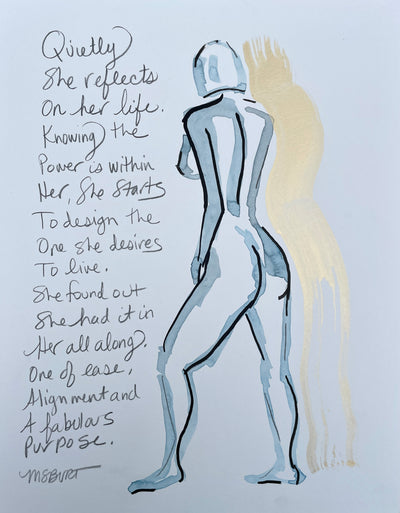 Quietly
She reflects
On her life.
Knowing the
Power is within
Her, She Starts
To design the
One she desires
To live.
She found out
She had it in
Her all along.
One of ease,
Alignment and
A fabulous
Purpose.
MSBURT